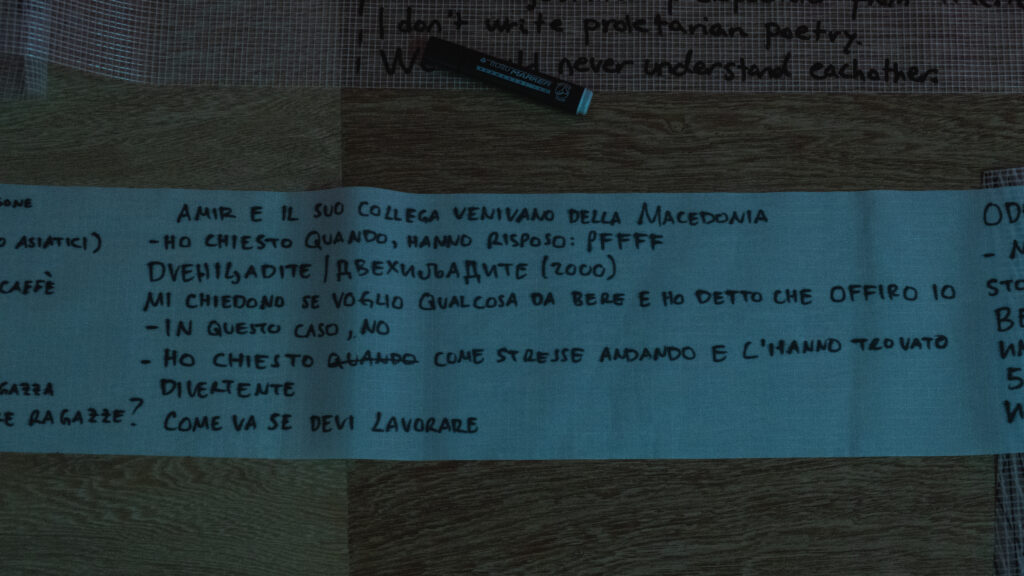 I don't write proletarian poetry.
never understand eachother.
MARKER
AMIR E IL SUO COLLEGA VENIVANO DELLA MACEDONIA
- HO CHIESTO QUANDO, HANNO RISPOSO: PFFFF
DVEHILJADITE / ДВЕХИЉАДИТЕ (2000)
MI CHIEDONO SE VOGLIO QUALCOSA DA BERE E HO DETTO CHE OFFIRO IO
- IN QUESTO CASO, NO
- HO CHIESTO QUANDO COME STRESSE ANDANDO E L'HANNO TROVATO
DIVERTENTE
COME VA SE DEVI LAVORARE
ASIATICI)
CAFFÈ
RAGAZZE?